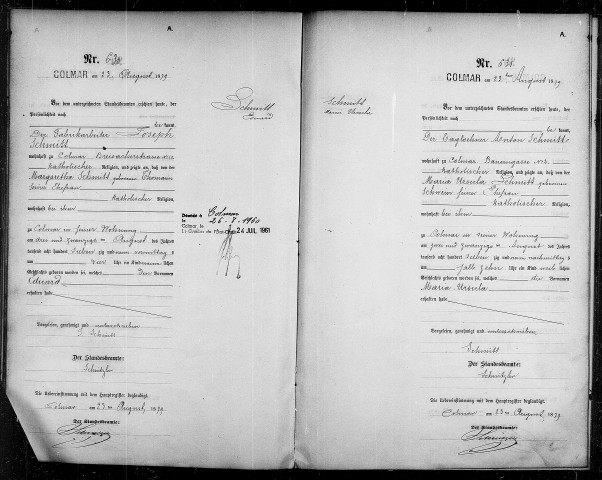 A.
Nr. 630
COLMAR am 23 August 1879
Vor dem unterzeichneten Standesbeamten erschien heute, der
Persönlichkeit nach
be kannt,
Der Fabrikarbeiter Joseph
Schmitt
wohnhaft zu Colmar Breisacherstrasse
katholischer Religion, und zeigte an, daß von der
Margaretha Schmitt geborenen
seiner Ehefrau
katholischer Religion,
wohnhaft bei ihm
zu Colmar in seiner Wohnung
am drei und zwanzigsten August des Jahres
tausend acht hundert sieben zig und neun vormittags
um vier Uhr ein Kind männlichen
Geschlechts geboren worden sei, welches den Vornamen
Eduard
erhalten habe
Vorgelesen, genehmigt und unterschrieben
J. Schmitt
Der Standesbeamte:
Schnitzler
Die Uebereinstimmung mit dem Hauptregister beglaubigt.
Colmar am 23ten August 1879.
Der Standesbeamte:
Schmitt
Décédé à Colmar
25-8-1960
Colmar, le 24 JUIL 1961
A.
Nr. 631
COLMAR am 23ten August 1879
Vor dem unterzeichneten Standesbeamten erschien heute, der
Persönlichkeit nach
be kannt,
Der Taglöhner Anton Schmitt
wohnhaft zu Colmar Baumgasse
katholischer Religion, und zeigte an, daß von der
Maria Ursula Schmitt geborenen
seiner Ehefrau
katholischer Religion,
wohnhaft bei ihm
zu Colmar in seiner Wohnung
am zwei und zwanzigsten August des Jahres
tausend acht hundert sieben zig und neun nachmittags
um halb zehn Uhr ein Kind weiblichen
Geschlechts geboren worden sei, welches die Vornamen
Maria Ursula
erhalten habe
Vorgelesen, genehmigt und unterschrieben
Schmitt
Der Standesbeamte:
Schnitzler
Die Uebereinstimmung mit dem Hauptregister beglaubigt.
Colmar am 23ten August 1879.
Der Standesbeamte:
Schmitt
Maria Ursula